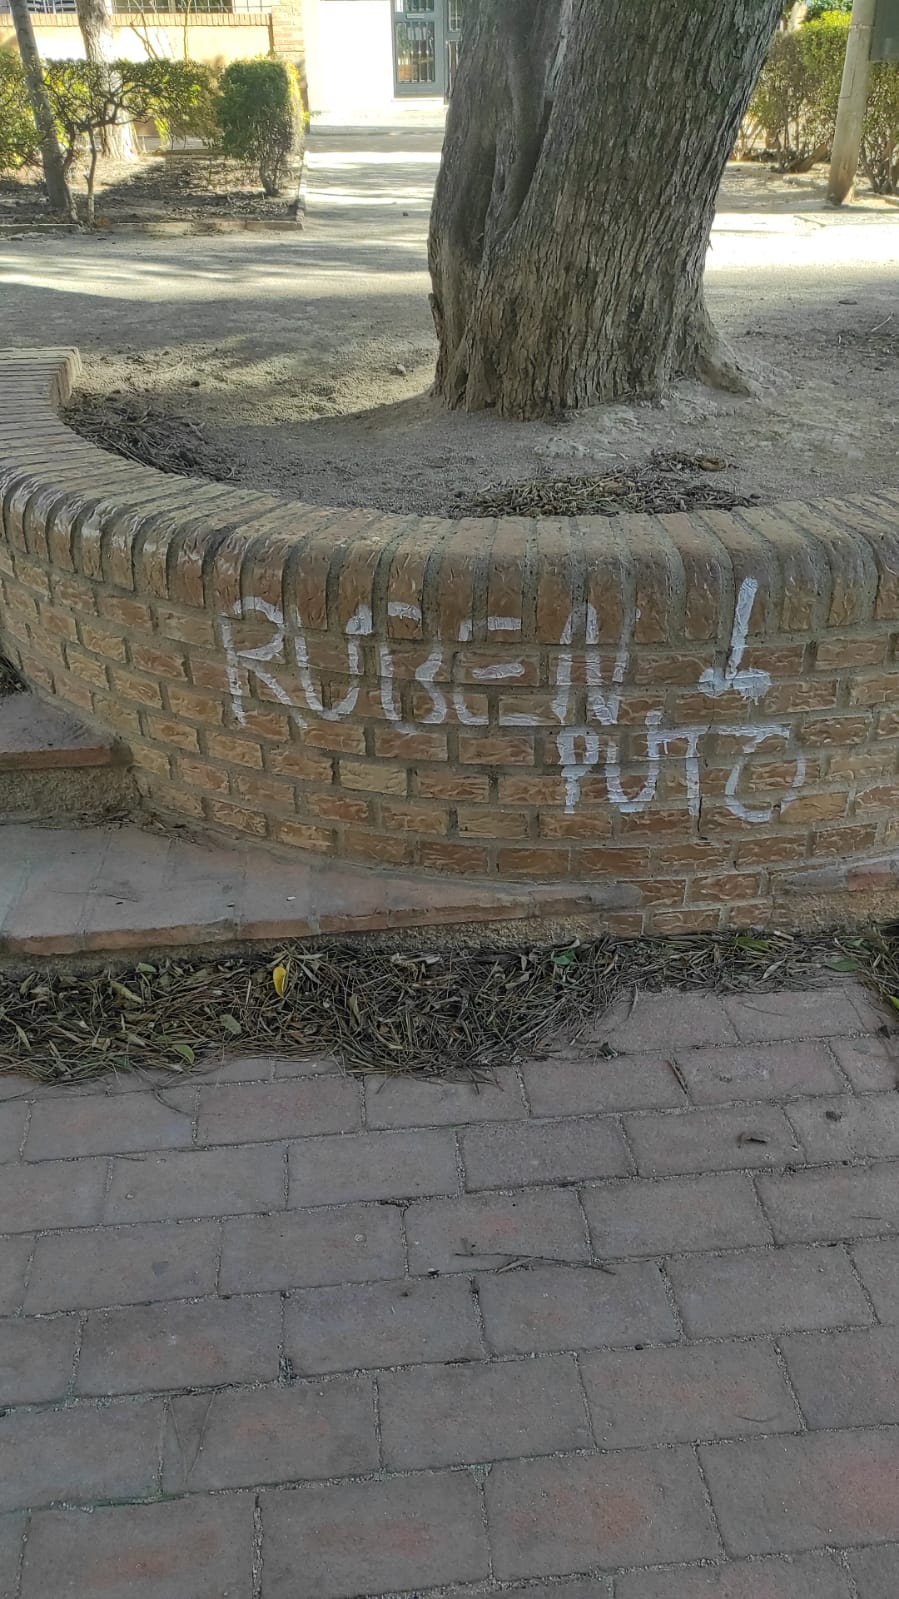 RUBEN
PUTO